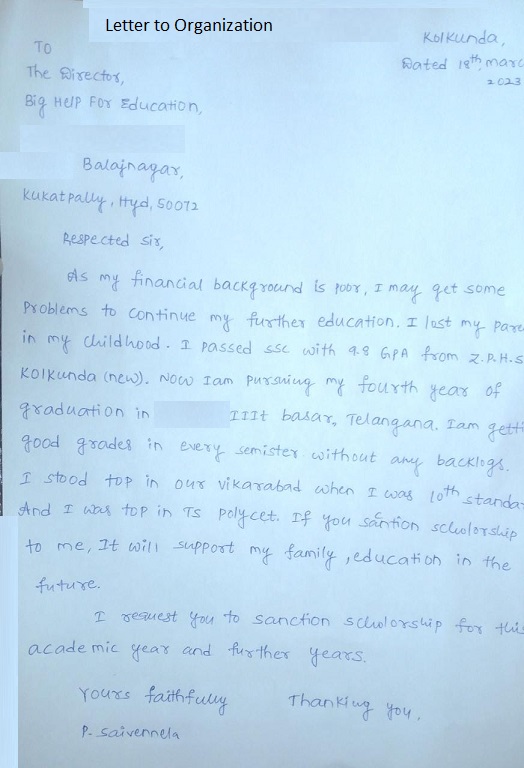 Letter to Organization
Kolkunda,
To
Dated 18th, marc
2023
The Director,
Big Help For Education,
Balajnagar,
Kukatpally, Hyd, 50072
Respected Sir,
As my financial background is poor, I may get some
Problems to continue my further education. I lost my pare
in my childhood. I passed ssc with 9.8 GPA from Z.P.H.S
Kolkunda (new). Now Iam pursuing my fourth year of
graduation in IIIt basar, Telangana. Iam getti
good grades in every semister without any backlogs.
I stood top in our vikarabad when I was 10th standa
And I was top in TS polycet. If you santion scholorship
to me, It will support my family, education in the
future.
I request you to sanction scholorship for this
academic year and further years.
Yours faithfully Thanking you.
P. Saivennela